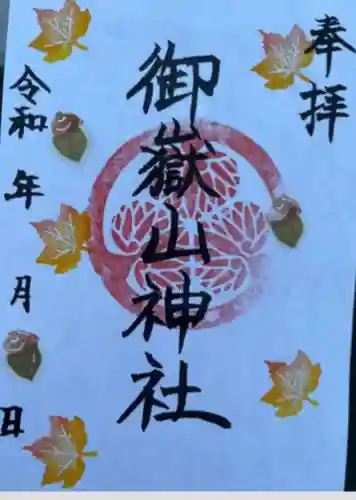 奉拝
御嶽山神社
令和 年 月 日